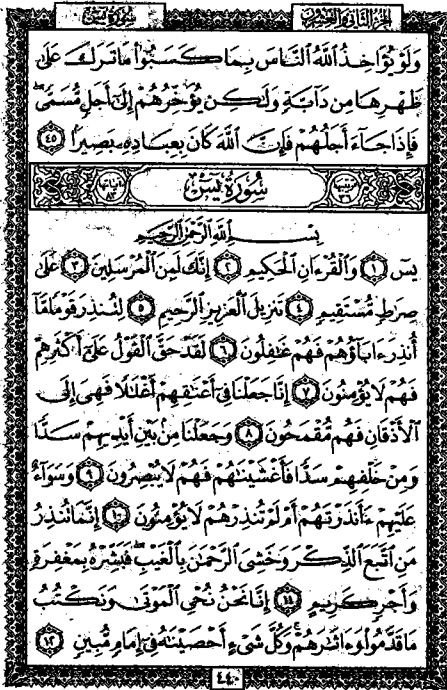 سورة يس الجزء الثاني والعشرون
وَلَوْ يُؤَاخِذُ ٱللَّهُ ٱلنَّاسَ بِمَا كَسَبُوا۟ مَا تَرَكَ عَلَىٰ
ظَهْرِهَا مِن دَآبَّةٍ وَلَٰكِن يُؤَخِّرُهُمْ إِلَىٰٓ أَجَلٍ مُّسَمًّى
فَإِذَا جَآءَ أَجَلُهُمْ فَإِنَّ ٱللَّهَ كَانَ بِعِبَادِهِۦ بَصِيرًۢا ٤٥
سُورَةُ يسٓ
بِسْمِ ٱللَّهِ ٱلرَّحْمَٰنِ ٱلرَّحِيمِ
يسٓ ١ وَٱلْقُرْءَانِ ٱلْحَكِيمِ ٢ إِنَّكَ لَمِنَ ٱلْمُرْسَلِينَ ٣ عَلَىٰ
صِرَٰطٍ مُّسْتَقِيمٍ ٤ تَنزِيلَ ٱلْعَزِيزِ ٱلرَّحِيمِ ٥ لِتُنذِرَ قَوْمًا مَّآ
أُنذِرَ ءَابَآؤُهُمْ فَهُمْ غَٰفِلُونَ ٦ لَقَدْ حَقَّ ٱلْقَوْلُ عَلَىٰٓ أَكْثَرِهِمْ
فَهُمْ لَا يُؤْمِنُونَ ٧ إِنَّا جَعَلْنَا فِىٓ أَعْنَٰقِهِمْ أَغْلَٰلًا فَهِىَ إِلَى
ٱلْأَذْقَانِ فَهُم مُّقْمَحُونَ ٨ وَجَعَلْنَا مِنۢ بَيْنِ أَيْدِيهِمْ سَدًّا
وَمِنْ خَلْفِهِمْ سَدًّا فَأَغْشَيْنَٰهُمْ فَهُمْ لَا يُبْصِرُونَ ٩ وَسَوَآءٌ
عَلَيْهِمْ ءَأَنذَرْتَهُمْ أَمْ لَمْ تُنذِرْهُمْ لَا يُؤْمِنُونَ ١٠ إِنَّمَا تُنذِرُ
مَنِ ٱتَّبَعَ ٱلذِّكْرَ وَخَشِىَ ٱلرَّحْمَٰنَ بِٱلْغَيْبِ فَبَشِّرْهُ بِمَغْفِرَةٍ
وَأَجْرٍ كَرِيمٍ ١١ إِنَّا نَحْنُ نُحْىِ ٱلْمَوْتَىٰ وَنَكْتُبُ
مَا قَدَّمُوا۟ وَءَاثَٰرَهُمْ وَكُلَّ شَىْءٍ أَحْصَيْنَٰهُ فِىٓ إِمَامٍ مُّبِينٍ ١٢
٤٤٠